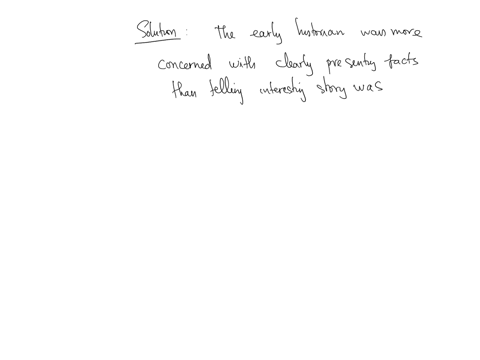 Solution: The early historian was more
concerned with clearly presenting facts
than telling interesting story was